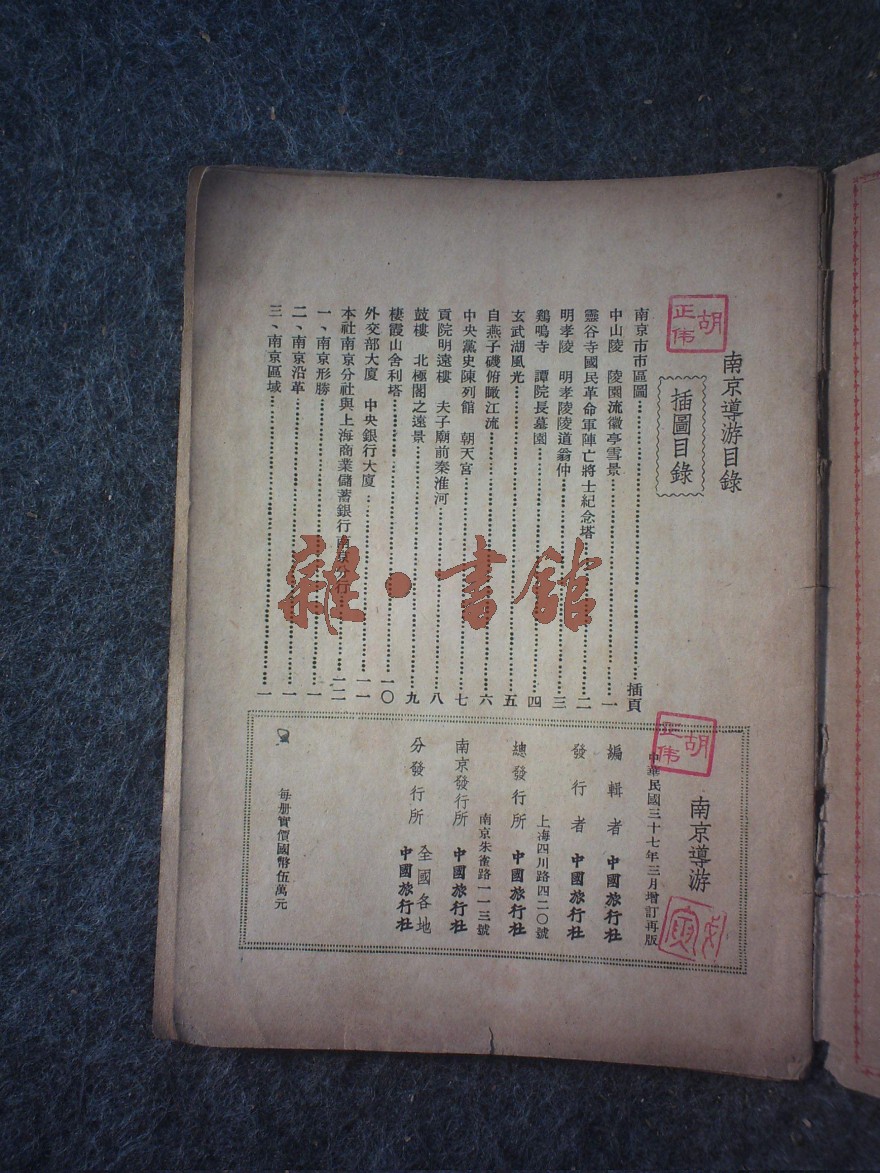 南京導游目錄
插圖目錄
南京市市區圖……插頁
中山陵　陵園流徽亭雪景……一
靈谷寺國民革命軍陣亡將士紀念塔……二
明孝陵　明孝陵陵道翁仲……三
鷄鳴寺　譚院長墓園……四
玄武湖風光……五
自燕子磯俯瞰江流……六
中央黨史陳列館　朝天宮……七
貢院明遠樓　夫子廟前秦淮河……八
鼓樓　北極閣之遠景……九
棲霞山舍利塔……一〇
外交部大厦　中央銀行大厦……一一
本社南京分社與上海商業儲蓄銀行南京分行……一二
一、南京形勝……一
二、南京沿革……一
三、南京區域……一
胡正伟
南京導游
中華民國三十七年三月增訂再版
編輯者　中國旅行社
發行者　中國旅行社
上海四川路四二〇號
總發行所　中國旅行社
南京朱雀路一一三號
南京發行所　中國旅行社
全國各地
分發行所　中國旅行社
每册實價國幣伍萬元
胡正伟
雜·書館